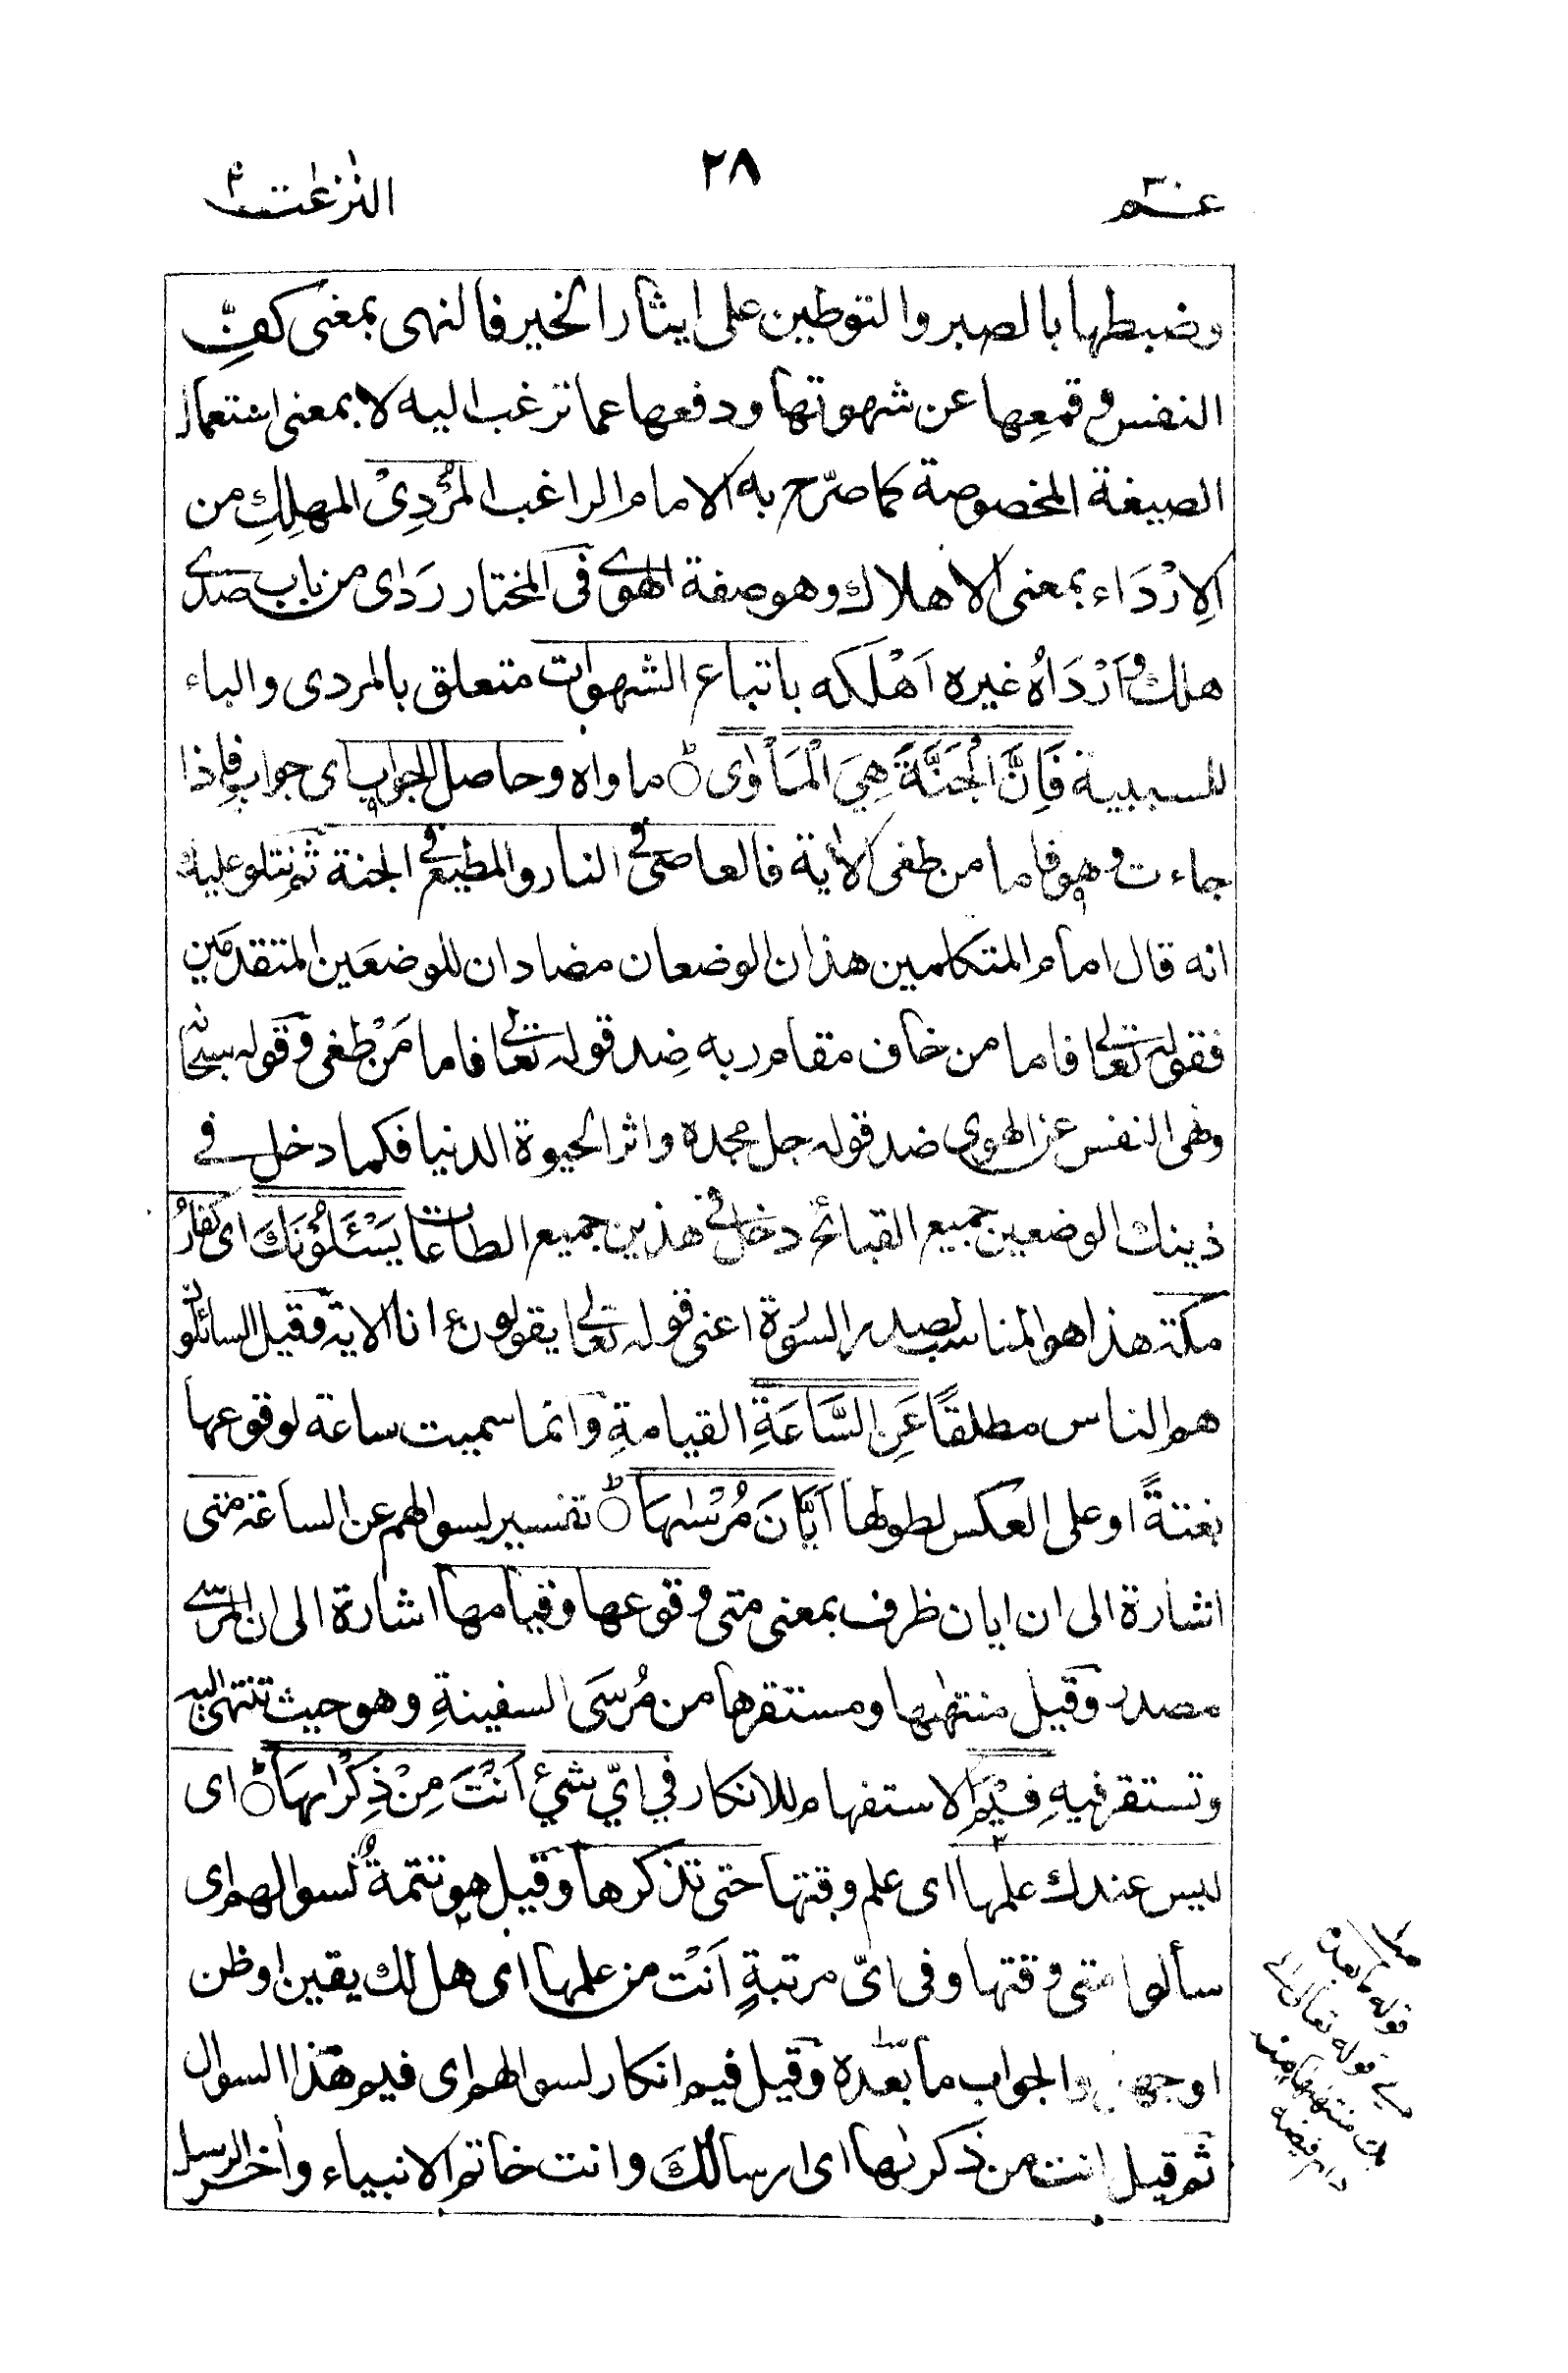 عم ٣٠
٢٨
النزعت
وضبطها بالصبر والتوطين على ايثار الخير فالنهى بمعنى كفِّ
النفس وقمعِها عن شهوتها ودفعها عما ترغب اليه لا بمعنى استعمال
الصيغة المخصوصة كما صرّح به الامام الراغب المُرْدِىْ المهلِكِ من
الاِرْدَاء بمعنى الاهلاك وهو صفة الهوى فى المختار رَدٰى من باب صدى
هلك واَرْدَاهُ غيره اَهْلَكه باتباع الشهوات متعلق بالمردى والباء
للسببية فَاِنَّ الْجَنَّةَ هِيَ الْمَأْوٰى ماواه وحاصل الجواب اى جواب فاذا
جاءت وهو فاما من طغى الأية فالعاصى فى النار والمطيع فى الجنة ثم نتلو عليك
انه قال امام المتكلمين هذان الوضعان مضادان للوضعَين المتقدمَين
فقوله تعالى فاما من خاف مقام ربه ضِد قوله تعالى فاما مَنْ طغى وقوله سبحانه
ونهى النفس عن الهوى ضد قوله جل مجده واثر الحيوة الدنيا فكما دخل فى
ذينك الوضعين جميع القبائح دخل فى هذين جميع الطاعات يَسْئَلُوْنَكَ اى كفارُ
مكة هذا هو المناسب لصدر السورة اعنى قوله تعالى يقولون ءانا الاية وقيل السائلون
هم الناس مطلقًا عَنِ السَّاعَةِ القيامةِ وانما سميت ساعة لوقوعها
بغتةً او على العكس لطولها اَيَّانَ مُرْسٰىهَا تفسير لسوالهم عن الساعة متى
اشارة الى ان ايان ظرف بمعنى متى وقوعها وقيامها اشارة الى ان المرسى
مصدر وقيل منتهٰىها ومستقرها من مُرسَى السفينةِ وهو حيث تنتهى اليه
وتستقر فيهِ فِيْمَ الاستفهام للانكار فى اىّ شئ اَنْتَ مِنْ ذِكْرٰىهَا اى
ليس عندك علمها اى علم وقتها حتى تذكرها وقيل هو تتمةٌ لسوالهم اى
سألوا متى وقتها وفى اىّ مرتبةٍ اَنْت من علمها اى هل لك يقين او ظن
او جهل والجواب ما بعده وقيل فيم انكار لسوالهم اى فيم هذا السوال
ثم قيل انت من ذكرٰىها اى ارسالك وانت خاتم الانبياء واٰخر الرسل